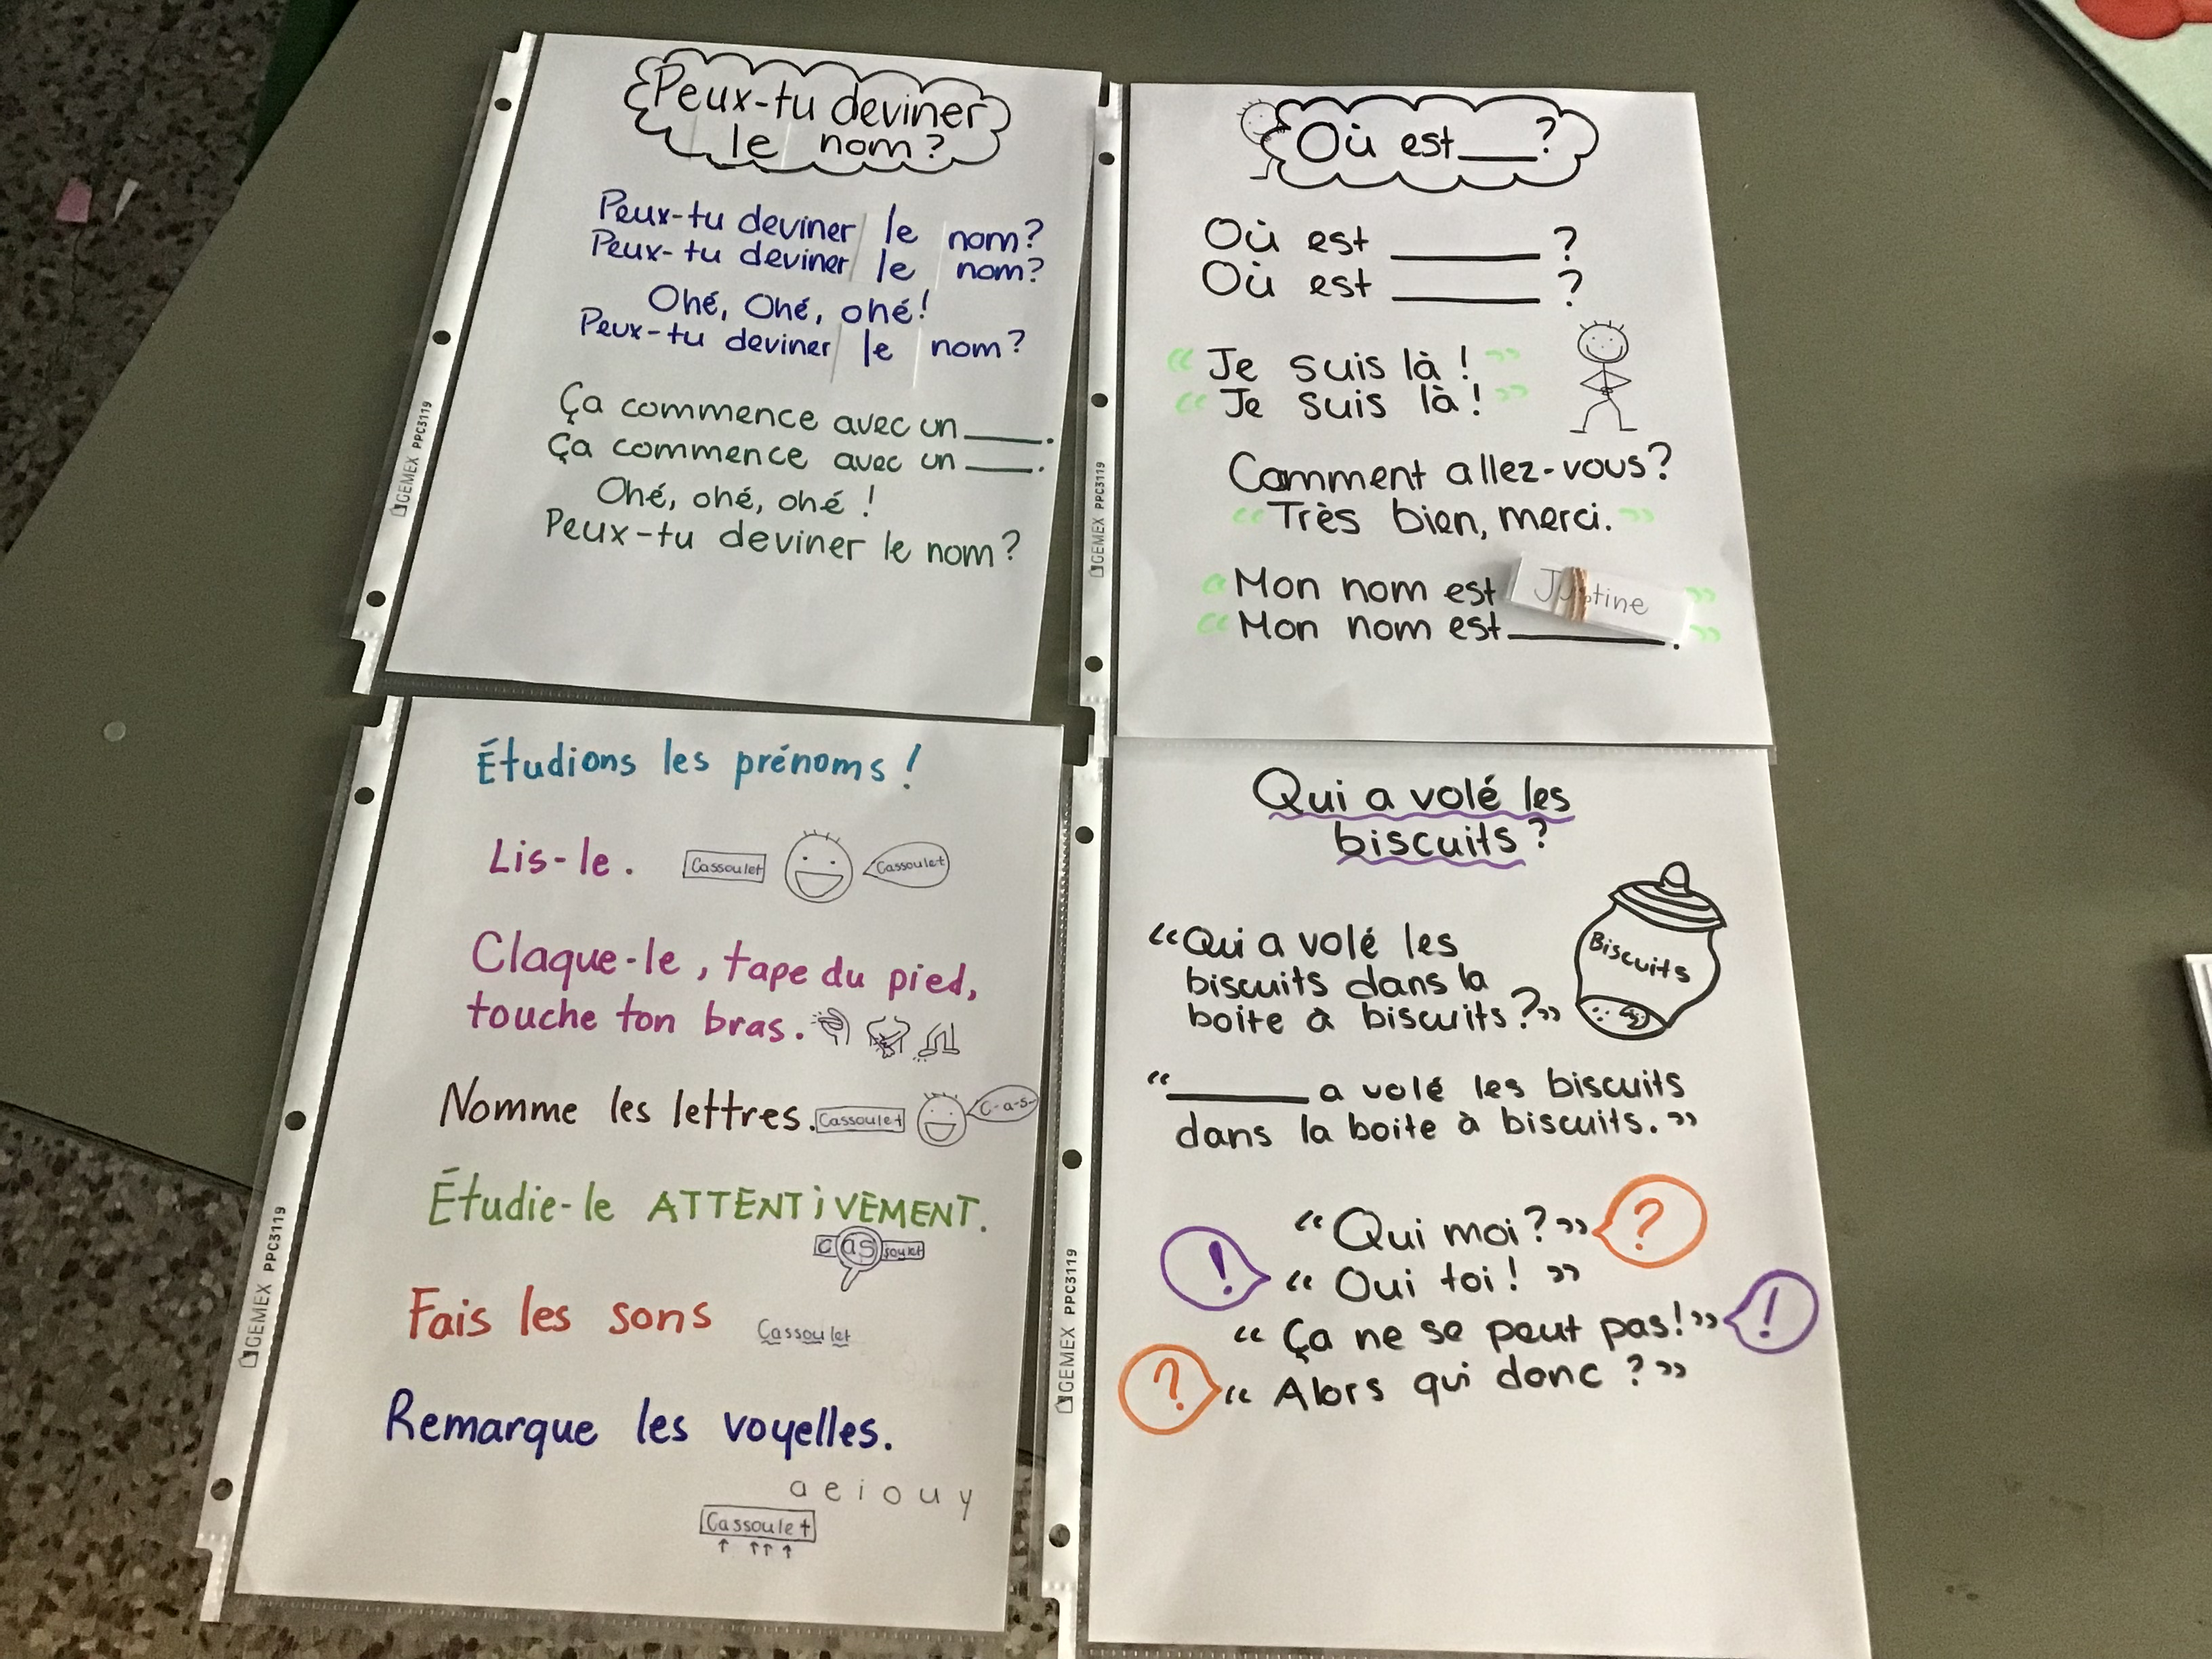 Peux-tu deviner
le nom?
Peux-tu deviner le nom?
Peux-tu deviner le nom?
Ohé, Ohé, ohé!
Peux-tu deviner le nom?
Ça commence avec un ____.
Ça commence avec un ____.
Ohé, ohé, ohé !
Peux-tu deviner le nom?
GEMEX PPC3119
Où est ____?
Où est ________ ?
Où est ________ ?
“ Je suis là ! ”
“ Je suis là ! ”
Comment allez-vous?
“ Très bien, merci. ”
“ Mon nom est Justine ”
“ Mon nom est ________. ”
GEMEX PPC3119
Étudions les prénoms !
Lis-le. Cassoulet Cassoulet
Claque-le, tape du pied,
touche ton bras.
Nomme les lettres. Cassoulet C-a-s-
Étudie-le ATTENTiVEMENT.
Cassoulet
Fais les sons Cassoulet
Remarque les voyelles.
a e i o u y
Cassoulet
GEMEX PPC3119
Qui a volé les
biscuits ?
Biscuits
“Qui a volé les
biscuits dans la
boite à biscuits ?”
“________ a volé les biscuits
dans la boite à biscuits.”
“Qui moi?” ?
! “ Oui toi ! ”
“ Ça ne se peut pas!” !
? “ Alors qui donc ?”
GEMEX PPC3119